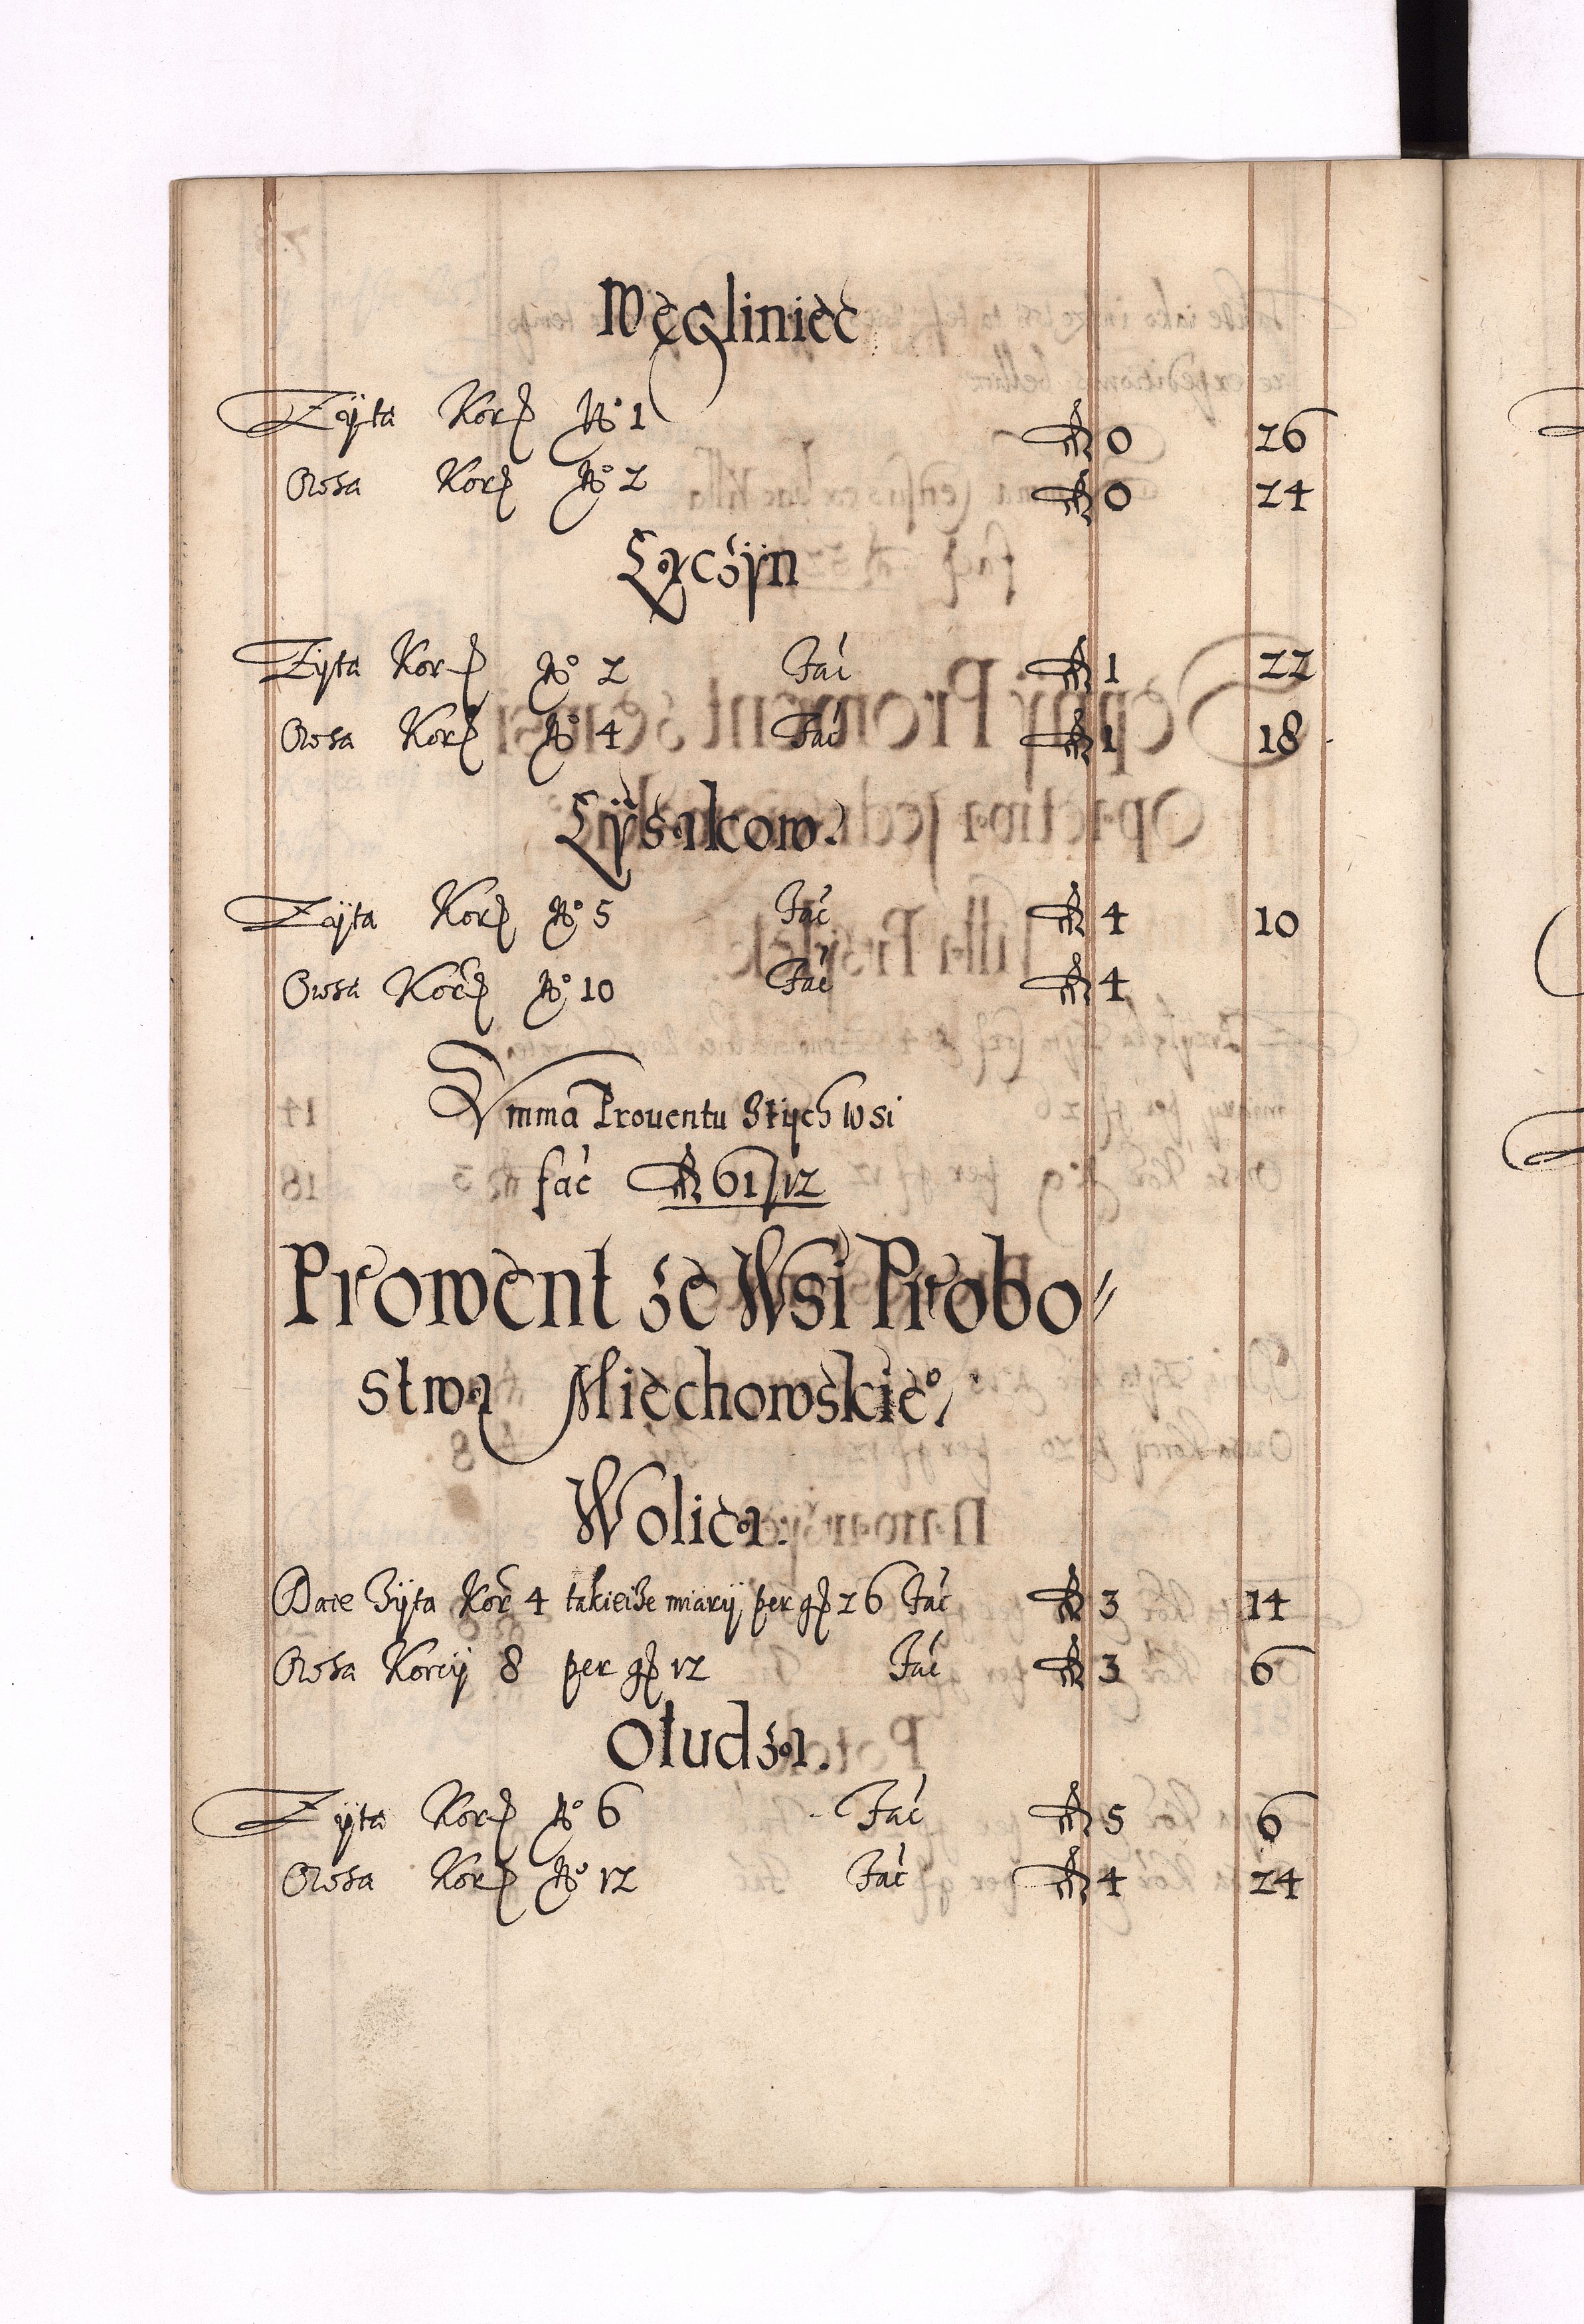 Węgliniec
Zÿta Kor No 1 fl 0 26
Owsa Kor No 2 fl 0 24
Łączÿn
Zyta Kor No 2 Fac̃ fl 1 22
Owsa Kor No 4 Fac̃ fl 1 18
Łÿsakow.
Zÿta Kor No 5 Fac̃ fl 4 10
Owsa Kor No 10 Fac̃ fl 4
Summa Prouentu Ztÿch wsi
fac̃ fl 61/12
Prowent ze Wsi Probo//
stwa Miechowskieo
Wolica.
Daie Zÿta Kor 4 takieiże miarÿ per gr 26 Fac̃ fl 3 14
Owsa Korcÿ 8 per gr 12 Fac̃ fl 3 6
Otudza.
Zÿta Kor No 6 Fac̃ fl 5 6
Owsa Kor No 12 Fac̃ fl 4 24